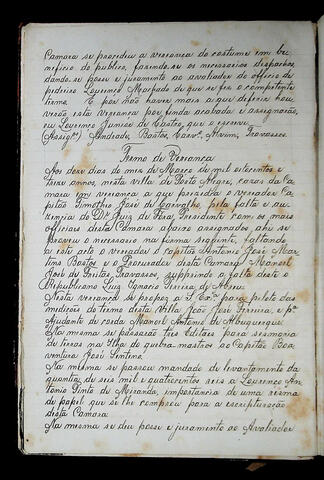 Camara se procedeu a vereança do costume em be-
neficio do publico, fazendo-se os necessarios despachos,
dando-se posse e juramento ao avaliador do officio de
pedreiro Lourenço Machado de que se fez o competente
termo. E por não haver mais a que deferir hou-
verão esta vereança por finda acabada e assignarão,
eu Lourenço Junior de Castro, que o escrevi,
(Assig.) Andrade, Bastos, Carv.º, Alvim, Travassos.
Termo de Vereança
Aos doze dias do mez de Março de mil oitocentos e
treze annos, nesta villa de Porto Alegre, cazas da Ca-
mara em vereança a que presidia o vereador Ca-
pitão Timotheo José de Carvalho pela falta e au-
zencia do Dr. Juiz de Fóra Presidente com os mais
officiais desta Camara abaixo assignados, ahi se
proveu o necessario na forma seguinte, faltando
a este acto o vereador o Capitão Antonio José Mar-
tins Bastos e o Procurador desta Camara Manoel
José de Freitas Travassos, supprindo a falta deste o
Republicano Luiz Ignacio Pereira de Abreu.
Nesta vereança se propoz a S. Ex.ª para piloto das
medições do termo desta Villa João José Ferreira, e p.ª
Ajudante de corda Manoel Antonio de Albuquerque.
Na mesma se passarão tres Editaes para sesmaria
de terras na Ilha do quebra-mastros ao Capitão Boa-
ventura José Sentens.
Na mesma se passou mandado de levantamento da
quantia de seis mil e quatrocentos reis a Lourenço An-
tonio Pinto de Miranda, importancia de uma resma
de papel que se lhe comprou para a escripturação
desta Camara.
Na mesma se deu posse e juramento ao Avaliador